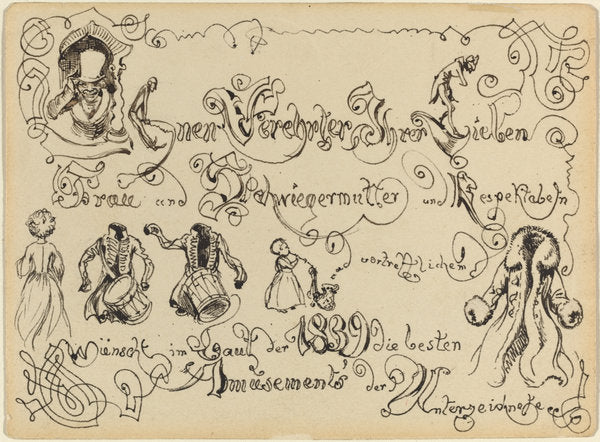 Ihnen Verehrter, Ihrer Lieben
Frau und Schwiegermutter und Respektabeln
vortrefflichen
Wünscht im Lauf der 1839 die besten
Amusements der Unterzeichnete